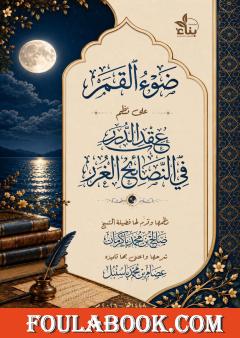 بناء
ضَوْءُ الْقَمَرْ
عَلَى نَظْمِ
عِقْدِ الدُّرَرْ
فِي النَّصَائِحِ الْغُرَرْ
نظمها وقدم لها فضيلة الشيخ
صالح بن محمد باكرمان
شرحها واعتنى بها تلميذه
عصام بن محمد باسنبل
FOULABOOK.COM